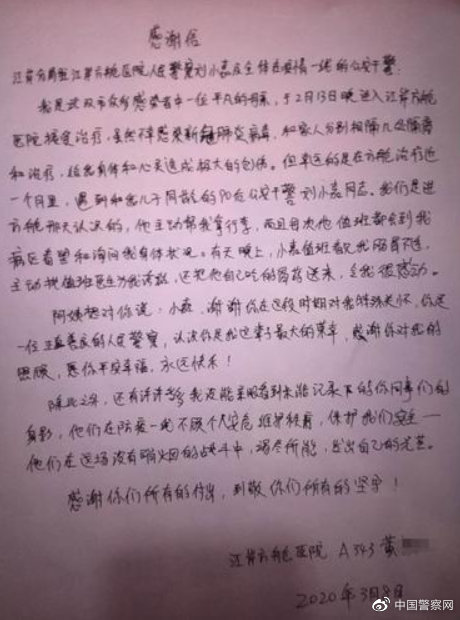 感谢信
江岸分局驻江岸方舱医院人民警察刘小磊及全体在疫情一线的公安干警:
我是武汉市众多感染者中一位平凡的母亲,于2月13日晚进入江岸方舱
医院接受治疗,虽然不幸感染新冠肺炎病毒,和家人分别相隔几处隔离
和治疗,给我身体和心灵造成极大的创伤。但幸运的是在方舱治疗近
一个月里,遇到和我儿子同龄的阳光公安干警刘小磊同志。我们是进
方舱那天认识的,他主动帮我拿行李,而且每次他值班都会到我
病区看望和询问我身体状况。有天晚上,小磊值班看见我肠胃不适,
主动找值班医生为我诊治,还把他自己吃的胃药送来,令我很感动。
阿姨想对你说:小磊,谢谢你在这段时期对我特殊关怀,你是
一位正直善良的人民警察,认识你是我这辈子最大的荣幸,感谢你对我的
照顾,愿你平安幸福,永远快乐!
除此之外,还有许许多多我没能亲眼看到未能记录下的你同事们的
身影,他们在防疫一线不顾个人安危维护秩序,保护我们安全——
他们在这场没有硝烟的战斗中,竭尽所能,发出自己的光芒。
感谢你们所有的付出,致敬你们所有的坚守!
江岸方舱医院 A343 黄
2020年3月8日
中国警察网